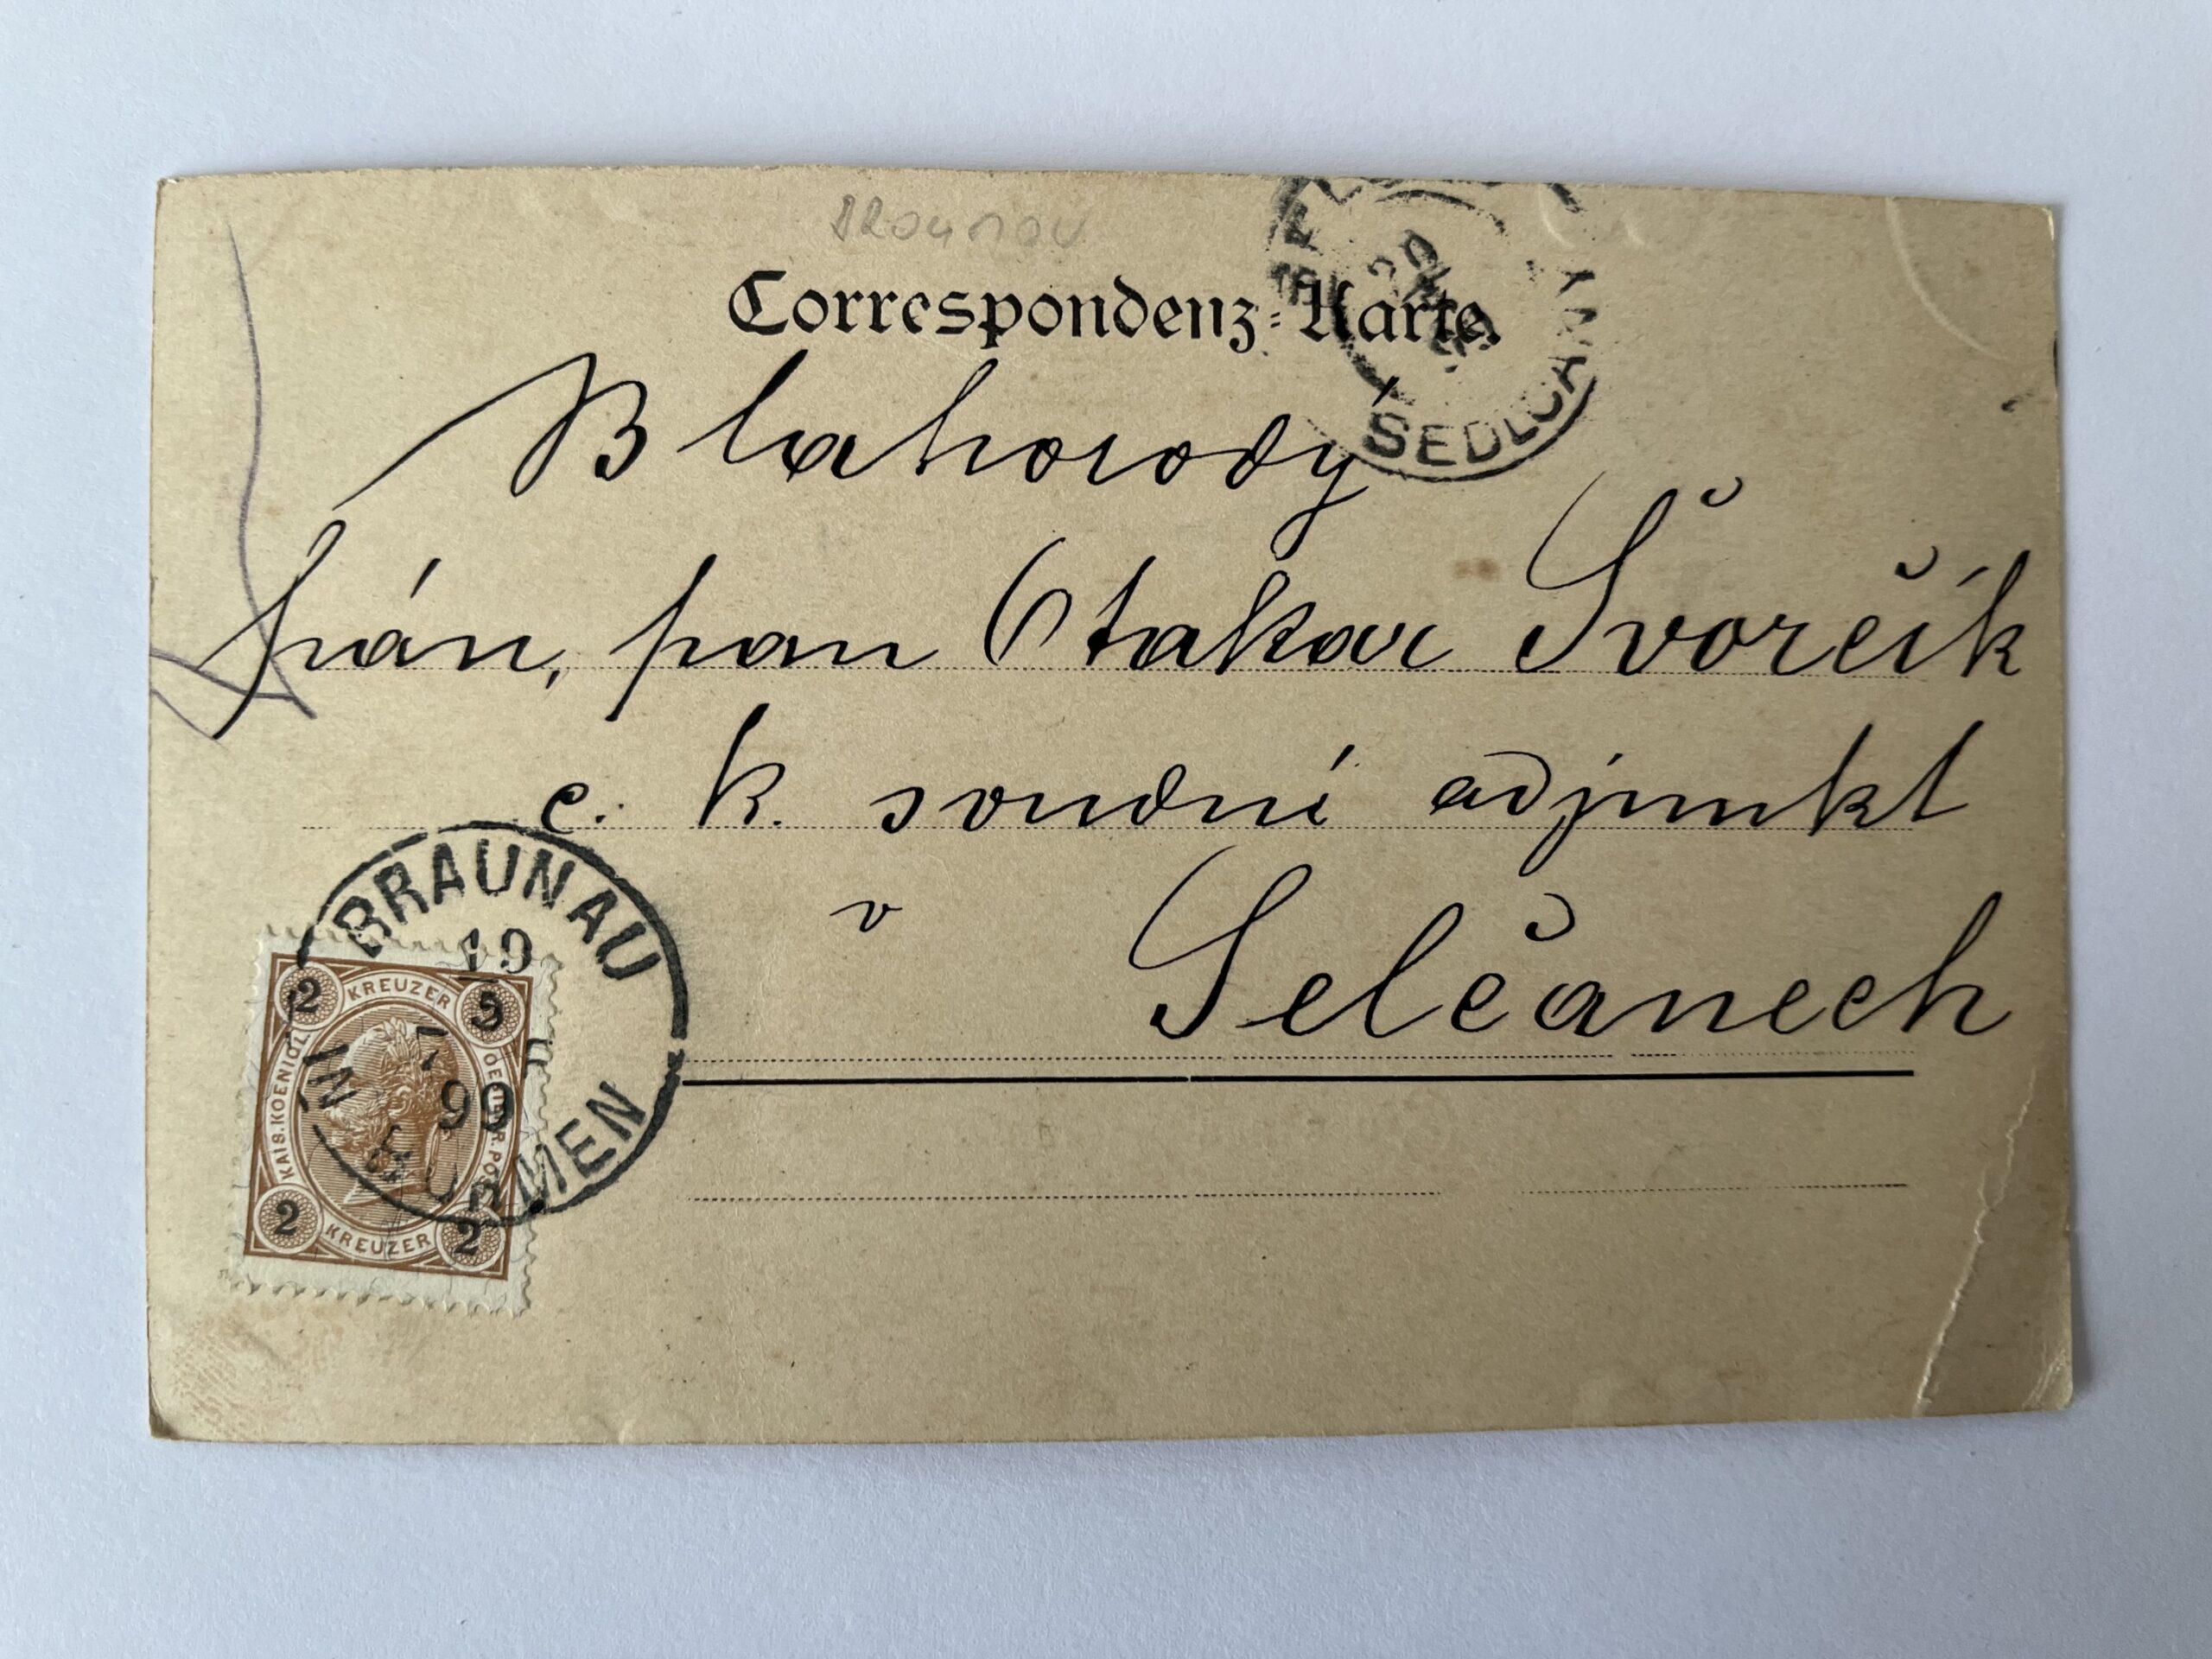 Correspondenz-Karte.
SEDLČANY
20
99
Blahorodý
pán, pan Otakar Švorčík
c. k. soudní adjunkt
v Selčanech
BRAUNAU
19
5
99
IN BÖHMEN
2 KREUZER
KAIS. KOENIGL. OESTERR. POST
2 KREUZER 2